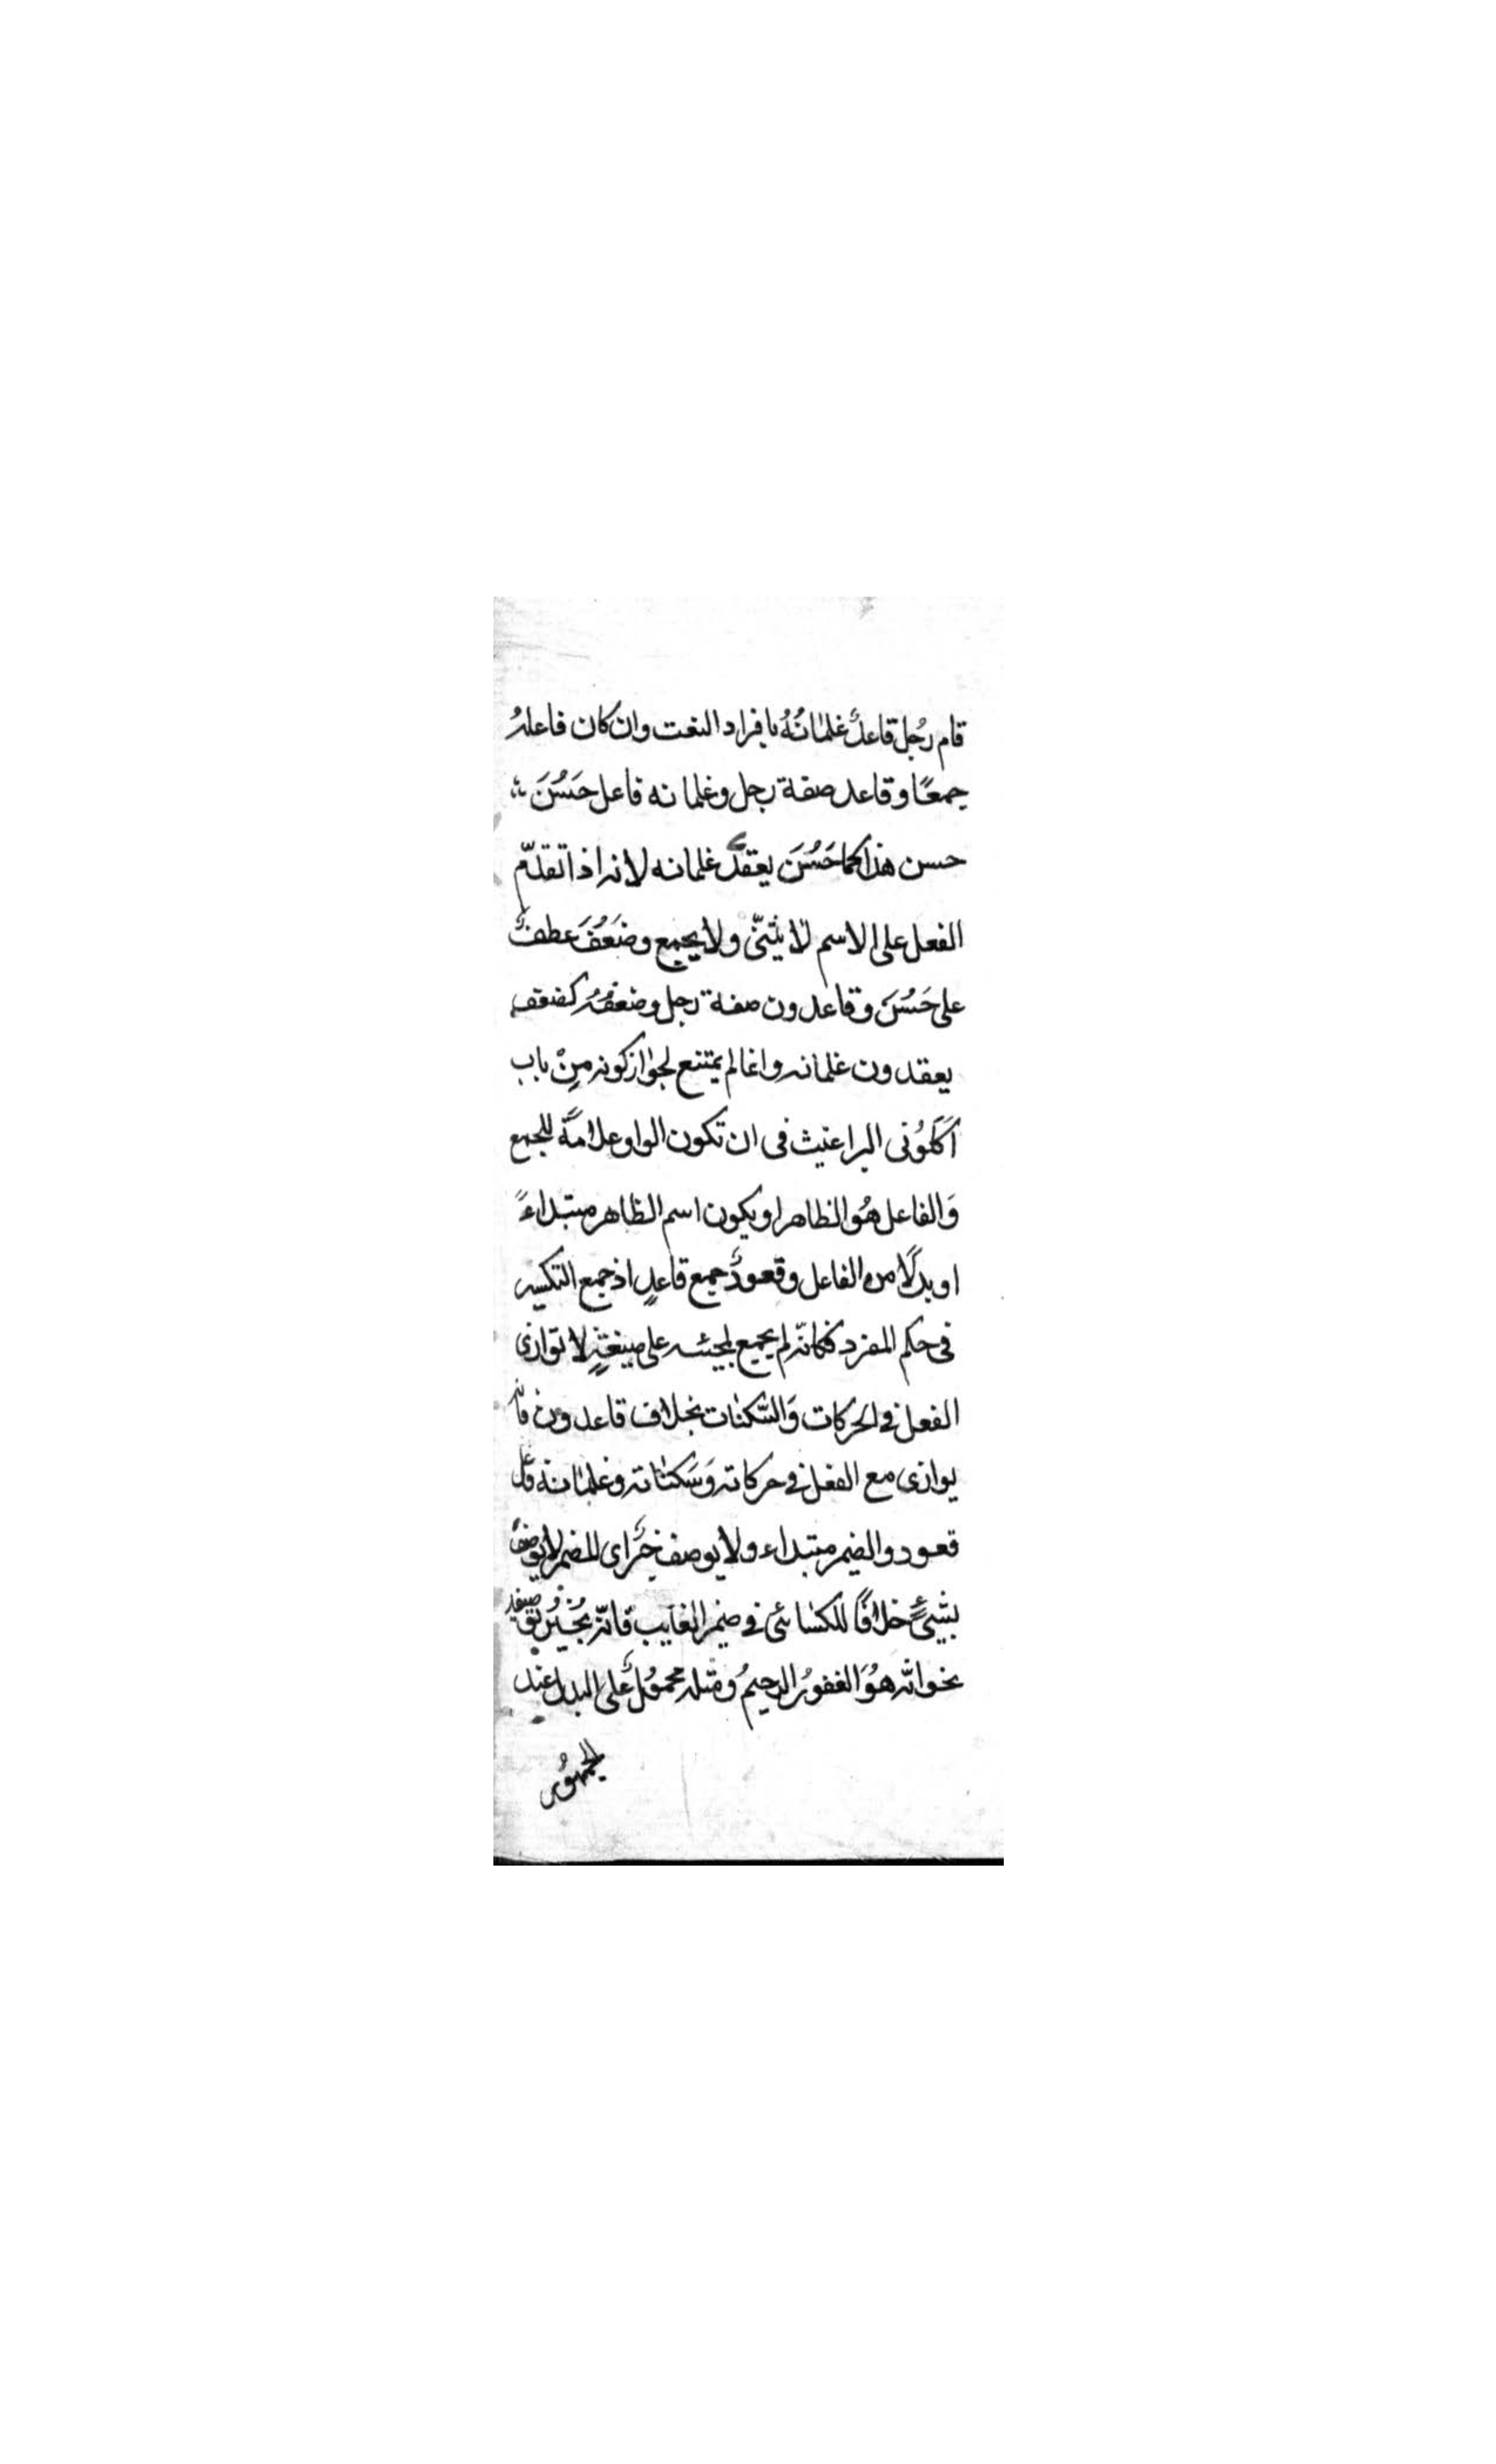 قام رجُل قاعدٌ غلمانُهُ بافراد النعت وان كان فاعلهُ
جمعًا وقاعد صفة رجل وغلمانه فاعل حَسُنَ
حسن هذا كما حَسُنَ يعقدُ غلمانه لانه اذا تقدّم
الفعل على الاسم لا يثنّى ولا يجمع وضَعُفَ عطفٌ
على حَسُنَ وقاعدون صفة رجل وضعفُهُ كضعف
يعقدون غلمانه وانما لم يمتنع لجواز كونه مِنْ باب
اَكَلُوُنى البراغيث فى ان تكون الواو علامةً للجمع
وَالفاعل هُو الظاهر او يكون اسم الظاهر مبتداءً
او بدلًا من الفاعل وقعودٌ جمع قاعدٍ اذ جمع التكسير
فى حكم المفرد فكانّه لم يجمع لمجيئه على صيغةٍ لا توازى
الفعل فى الحركات وَالسَّكنات بخلاف قاعدون فانّه
يوازى مع الفعل فى حركاته وَسَكناته وغلمانه فاعل
قعود والضمير مبتداء ولا يوصف خبرٌ اى المضمر لا يوصف
بشيئٍ خلافًا للكسائى فى ضمير الغايب فانّه يُجيزُ توصيفه
نحو انّه هُوَ الغفورُ الرحيمُ ومثله محموُلٌ على البدل عند
الجمهوُر